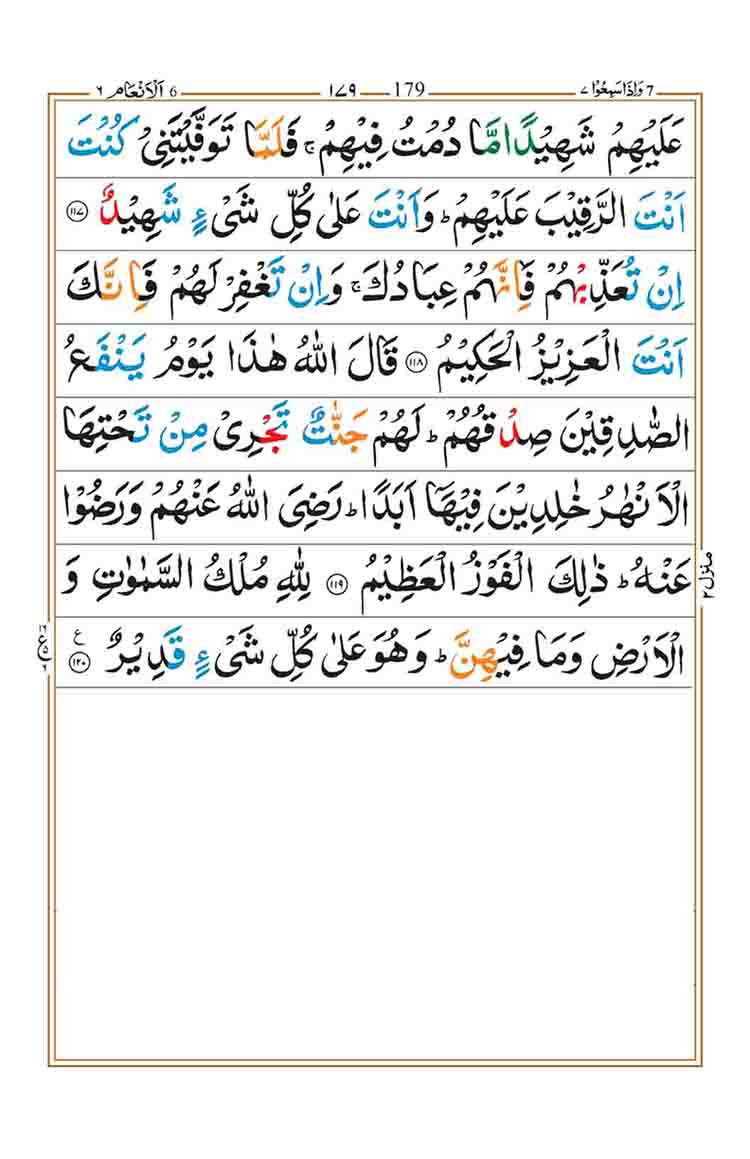 ٦ اَلْاَنْعَام 6 ١٧٩ 179 ٧ وَاِذَاسَمِعُوْا 7
عَلَيْهِمْ شَهِيْدًا مَّا دُمْتُ فِيْهِمْ ۚ فَلَمَّا تَوَفَّيْتَنِيْ كُنْتَ
اَنْتَ الرَّقِيْبَ عَلَيْهِمْ ؕ وَاَنْتَ عَلٰى كُلِّ شَيْءٍ شَهِيْدٌ ﴿١١٧﴾
اِنْ تُعَذِّبْهُمْ فَاِنَّهُمْ عِبَادُكَ ۚ وَاِنْ تَغْفِرْ لَهُمْ فَاِنَّكَ
اَنْتَ الْعَزِيْزُ الْحَكِيْمُ ﴿١١٨﴾ قَالَ اللّٰهُ هٰذَا يَوْمُ يَنْفَعُ
الصّٰدِقِيْنَ صِدْقُهُمْ ؕ لَهُمْ جَنّٰتٌ تَجْرِيْ مِنْ تَحْتِهَا
الْاَنْهٰرُ خٰلِدِيْنَ فِيْهَاۤ اَبَدًا ؕ رَضِيَ اللّٰهُ عَنْهُمْ وَرَضُوْا
عَنْهُ ؕ ذٰلِكَ الْفَوْزُ الْعَظِيْمُ ﴿١١٩﴾ لِلّٰهِ مُلْكُ السَّمٰوٰتِ وَ
الْاَرْضِ وَمَا فِيْهِنَّ ؕ وَهُوَ عَلٰى كُلِّ شَيْءٍ قَدِيْرٌ ﴿١٢٠﴾ ع
منزل ٢